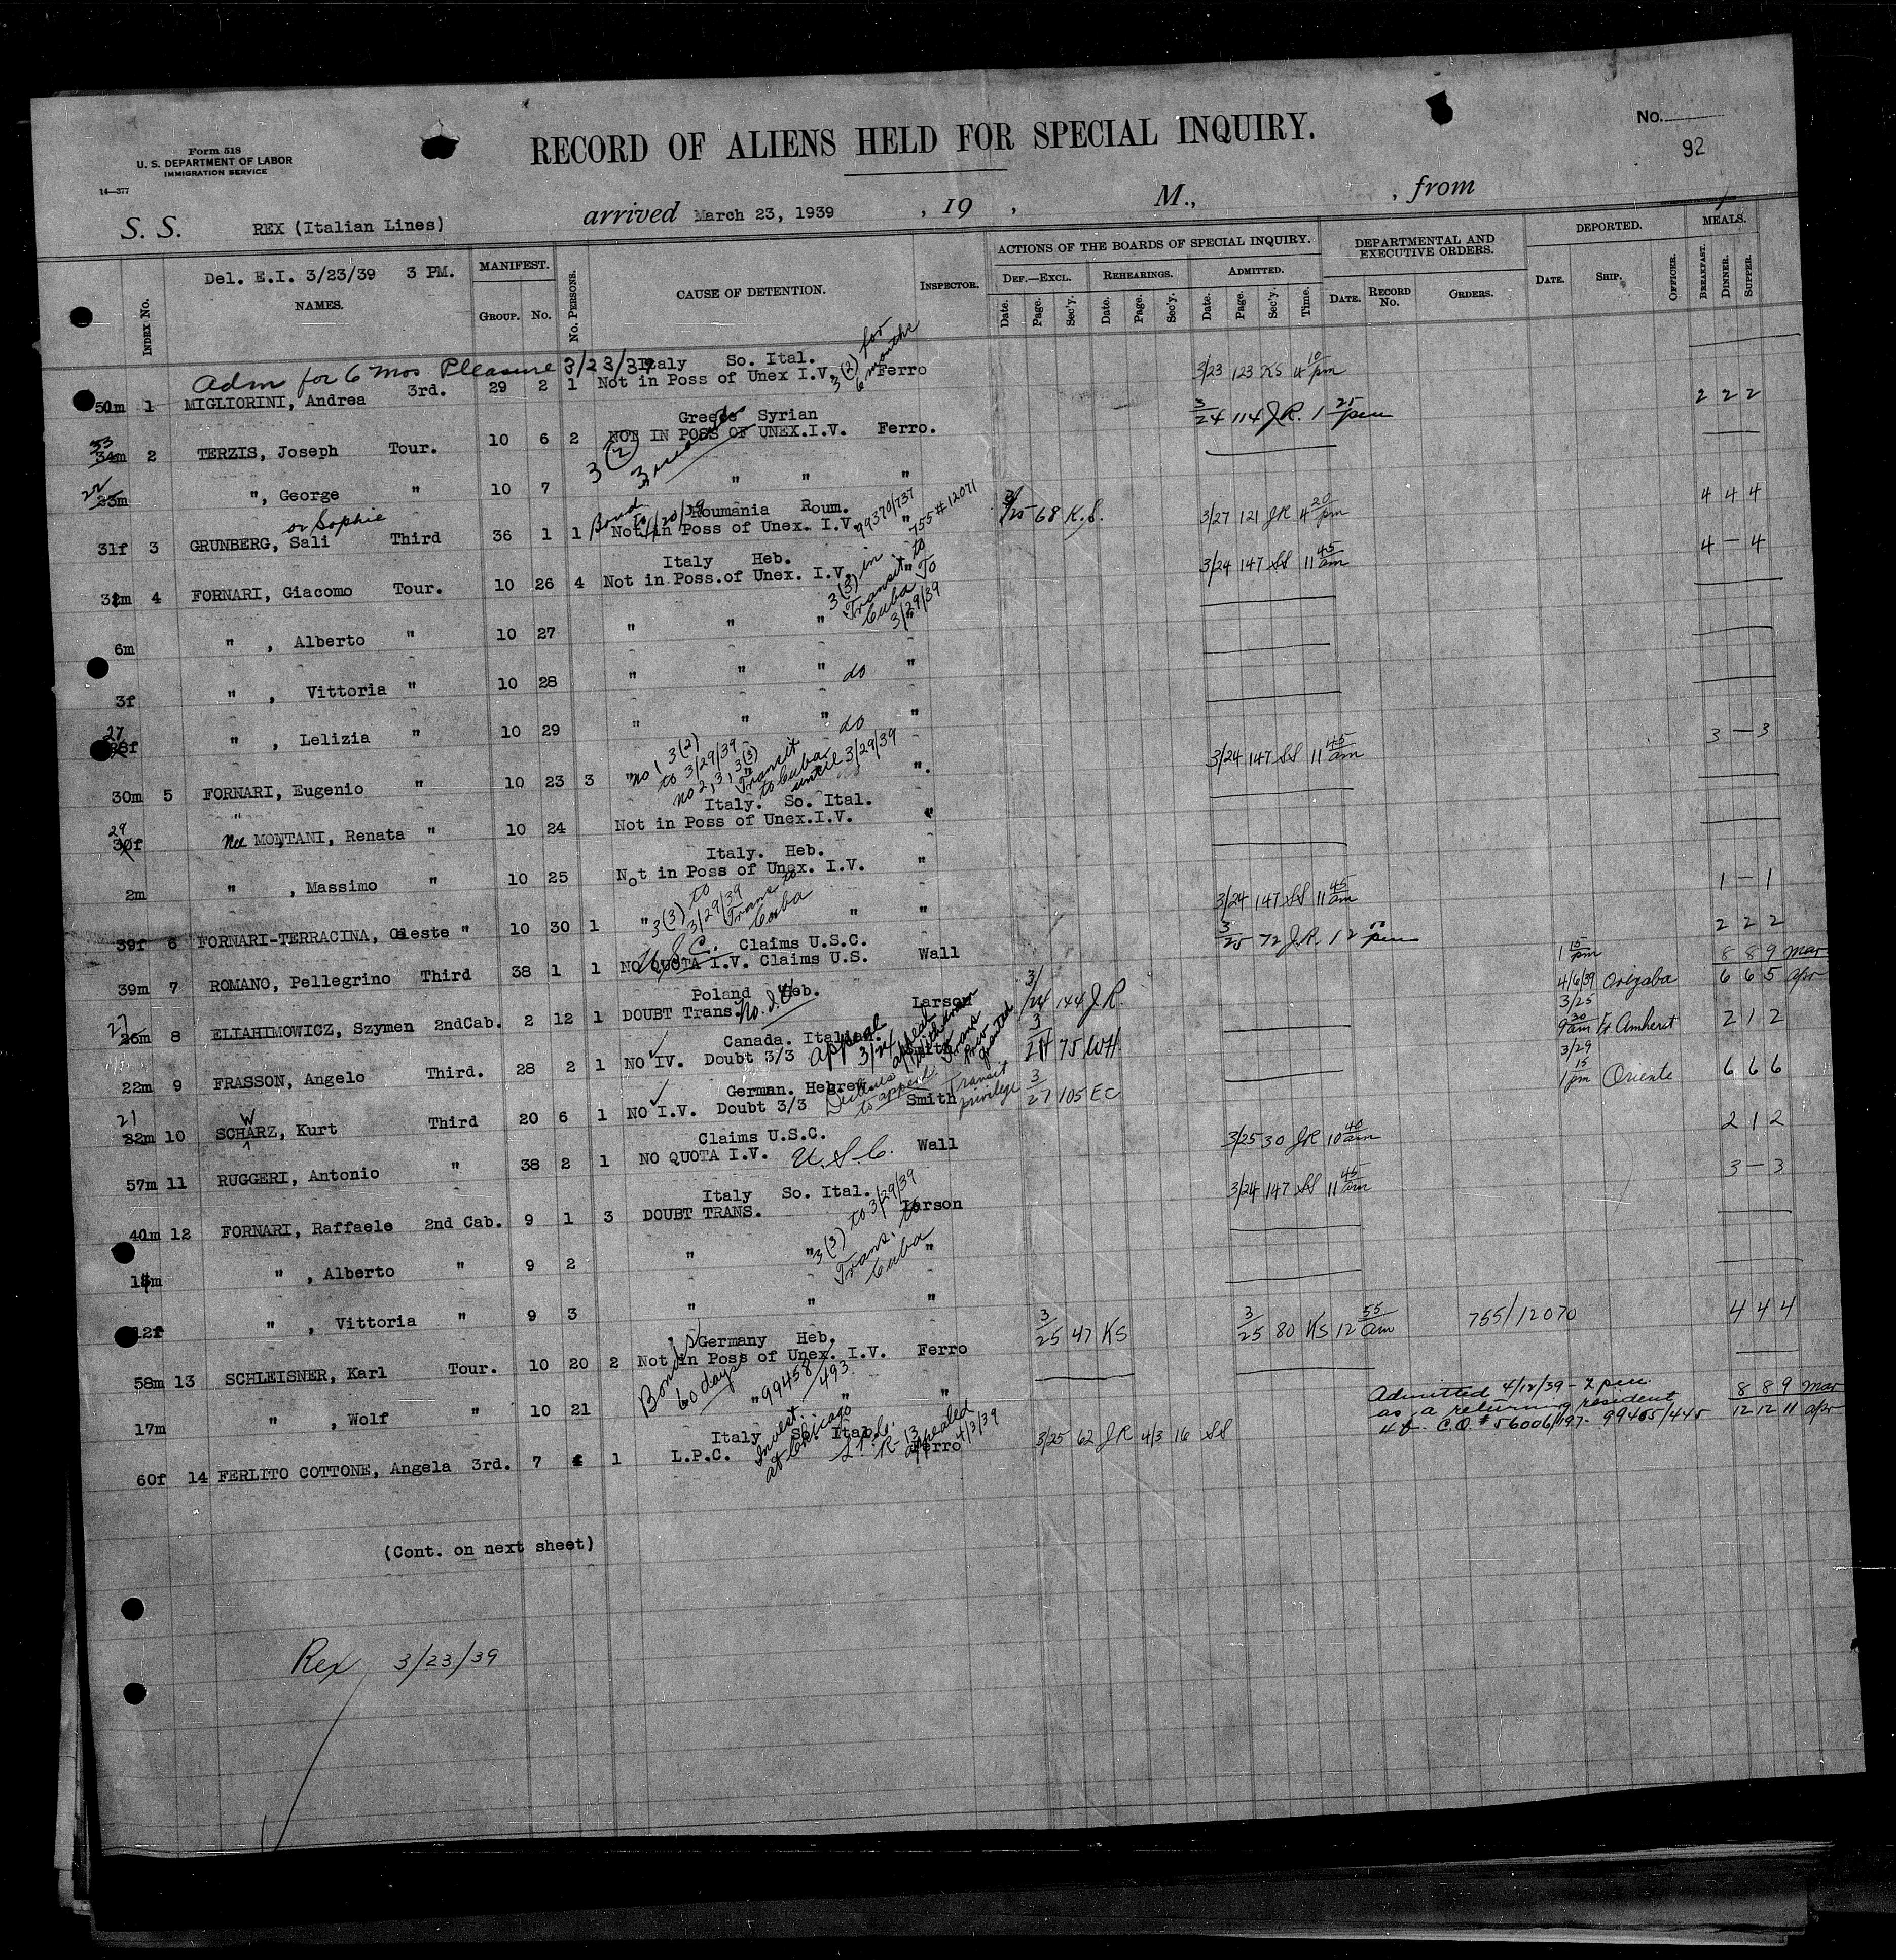 Form 518
U. S. DEPARTMENT OF LABOR
IMMIGRATION SERVICE
14—377
RECORD OF ALIENS HELD FOR SPECIAL INQUIRY.
No.
92
S. S. REX (Italian Lines) arrived March 23, 1939 , 19 , M., , from
Del. E.I. 3/23/39 3 PM.
INDEX No. NAMES. MANIFEST. GROUP. No. No. PERSONS. CAUSE OF DETENTION. INSPECTOR.
ACTIONS OF THE BOARDS OF SPECIAL INQUIRY. DEPARTMENTAL AND EXECUTIVE ORDERS. DEPORTED. MEALS.
DEF.—EXCL. REHEARINGS. ADMITTED.
Date. Page. Sec'y. Date. Page. Sec'y. Date. Page. Sec'y. Time. DATE. RECORD No. ORDERS. DATE. SHIP. OFFICER. BREAKFAST. DINNER. SUPPER.
Adm for 6 mos Pleasure 3/23/39
Italy So. Ital. 3(2) for 6 months
50m 1 MIGLIORINI, Andrea 3rd. 29 2 1 Not in Poss of Unex I.V. Ferro 3/23 123 KS 4 10 pm
Greece Syrian
53 34m 2 TERZIS, Joseph Tour. 10 6 2 NOT IN POSS OF UNEX.I.V. Ferro. 3/24 114 J.R. 1 25 pm 2 2 2
3(2)
22 23m ", George " 10 7 " " "
or Sophie
Bond Roumania Roum. 99370/737 755#12071
31f 3 GRUNBERG, Sali Third 36 1 1 Not in Poss of Unex. I.V. " 3/25 68 K.S. 3/27 121 JR 4 20 pm 4 4 4
Italy Heb. 3(3) in Transit to Cuba To 3/29/39
32m 4 FORNARI, Giacomo Tour. 10 26 4 Not in Poss.of Unex. I.V. " 3/24 147 SS 11 45 am 4 — 4
6m " , Alberto " 10 27 " " " "
3f " , Vittoria " 10 28 " " " do "
27 28f " , Lelizia " 10 29 " " " do "
no 1 3(2) to 3/29/39 no 2, 3, 3(3) Transit to Cuba until 3/29/39
30m 5 FORNARI, Eugenio " 10 23 3 " ". 3/24 147 SS 11 45 am 3 — 3
Italy. So. Ital.
29 30f " nee MONTANI, Renata " 10 24 Not in Poss of Unex.I.V. "
Italy. Heb.
2m " , Massimo " 10 25 Not in Poss of Unex. I.V. "
3(3) to 3/29/39 Trans to Cuba
39f 6 FORNARI-TERRACINA, Celeste " 10 30 1 " " " 3/24 147 SS 11 45 am 1 — 1
U.S.C. Claims U.S.C.
39m 7 ROMANO, Pellegrino Third 38 1 1 NO QUOTA I.V. Claims U.S. Wall 3/25 72 J.R. 12 pm 2 2 2
Poland Heb. No. I.V. 1 15 pm 8 8 9 mar
27 26m 8 ELIAHIMOWICZ, Szymen 2ndCab. 2 12 1 DOUBT Trans. Larson 3/24 144 J.R. 4/6/39 Orizaba 6 6 5 apr
Canada. Italian Appeal 3/24 3/25
22m 9 FRASSON, Angelo Third. 28 2 1 NO IV. Doubt 3/3 Smith 3/24 75 WH. 9 30 am Ft Amherst 2 1 2
German. Hebrew Declines to appeal Transit privilege 3/29
21 22m 10 SCHWARZ, Kurt Third 20 6 1 NO I.V. Doubt 3/3 Smith 3/27 105 EC 1 15 pm Oriente 6 6 6
Claims U.S.C.
57m 11 RUGGERI, Antonio " 38 2 1 NO QUOTA I.V. U.S.C. Wall 3/25 30 JR 10 40 am 2 1 2
Italy So. Ital. 3(3) to 3/29/39 Trans. to Cuba
41m 12 FORNARI, Raffaele 2nd Cab. 9 1 3 DOUBT TRANS. Larson 3/24 147 SS 11 45 am 3 — 3
" , Alberto " 9 2 " " "
12f " , Vittoria " 9 3 " " "
Bond 60 days Germany Heb. 99458/493
58m 13 SCHLEISNER, Karl Tour. 10 20 2 Not in Poss of Unex. I.V. Ferro 3/25 47 KS 3/25 80 KS 12 55 am 755/12070 4 4 4
17m " , Wolf " 10 21 " " "
Admitted 4/12/39 - 2 pm as a returning resident
4 b. C.O. #56006/197- 99465/445
8 8 9 mar
12 12 11 apr
Italy So. Ital. Invest. at Chicago L.P.C. R-13 appealed 4/3/39
60f 14 FERLITO COTTONE, Angela 3rd. 7 1 L.P.C. Ferro 3/25 62 JR 4/3 16 SS
(Cont. on next sheet)
Rex 3/23/39